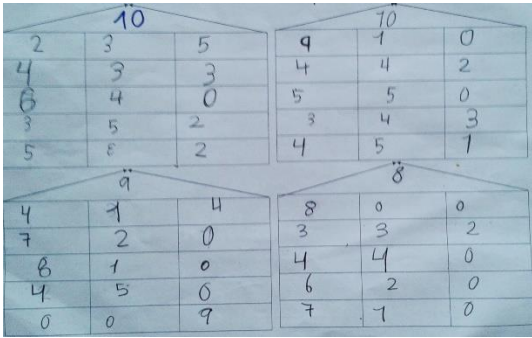 10
2 3 5
4 3 3
6 4 0
3 5 2
5 2
10
9 1 0
4 4 2
5 5 0
3 4 3
4 5 1
9
4 1 4
7 2 0
8 1 0
4 5 0
0 0 9
8
8 0 0
3 3 2
4 4 0
6 2 0
7 1 0